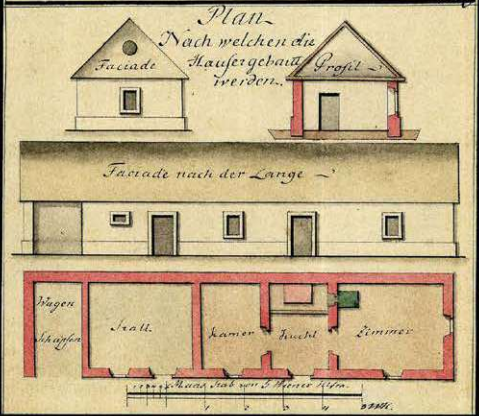 Plan
Nach welchen die
Hauser gebautt
werden.
Faciade
Profil
Faciade nach der Lange
Wagen
Schupfen
Stall
Kamer
Kuchl
Zimmer
Maas Stab von 5 Wiener
1 2 3 4